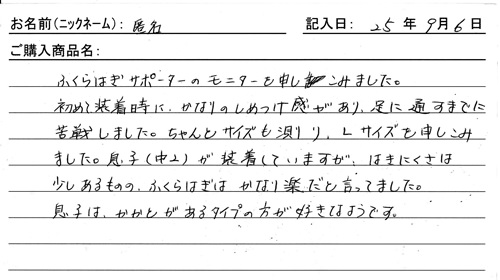 お名前(ニックネーム): 匿名 記入日: 25 年 9月 6日
ご購入商品名:
ふくらはぎサポーターのモニターを申しこみました。
初めて装着時に、かなりのしめつけ感があり、足に通すまでに
苦戦しました。ちゃんとサイズも測り、Lサイズを申しこみ
ました。息子(中2)が装着していますが、はきにくさは
少しあるものの、ふくらはぎはかなり楽だと言ってました。
息子は、かかとがあるタイプの方が好きなようです。